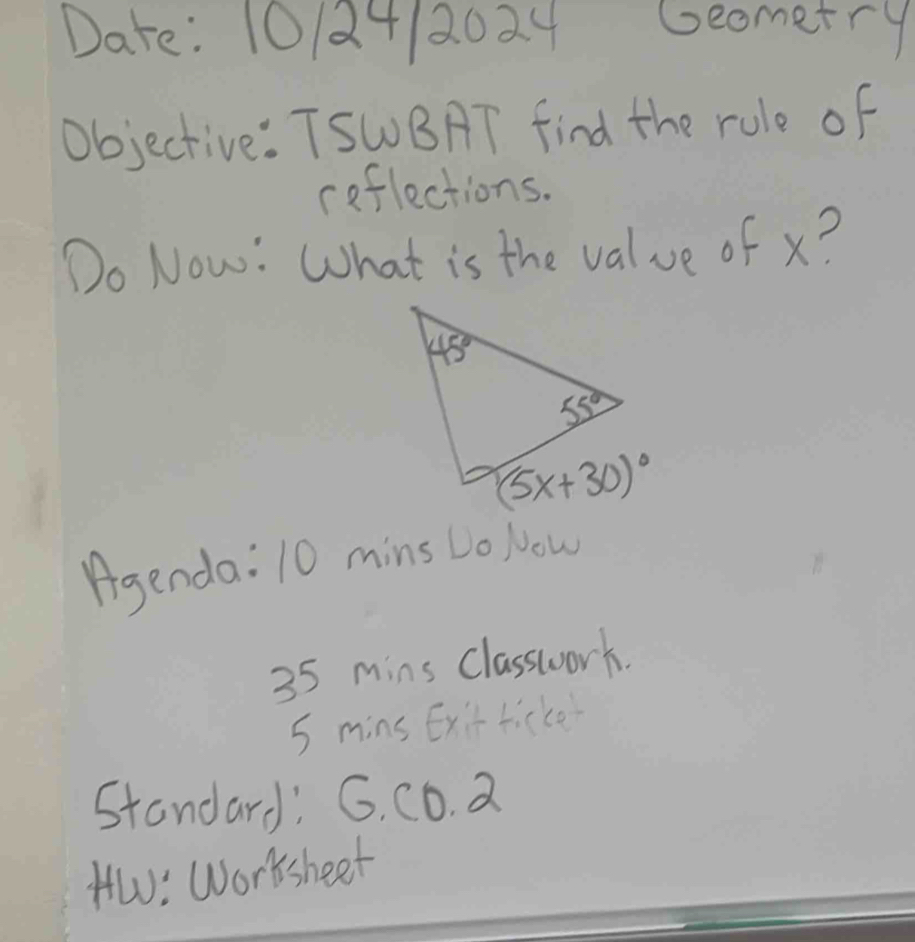 Date: 10/24/2024 Geometry
Objective: TSWBAT find the rule of
reflections.
Do Now: What is the value of x?
45°
55°
(5x+30)°
Agenda: 10 mins Do Now
35 mins Classwork.
5 mins Exit ticket
Standard: G.CO.2
HW: Worksheet